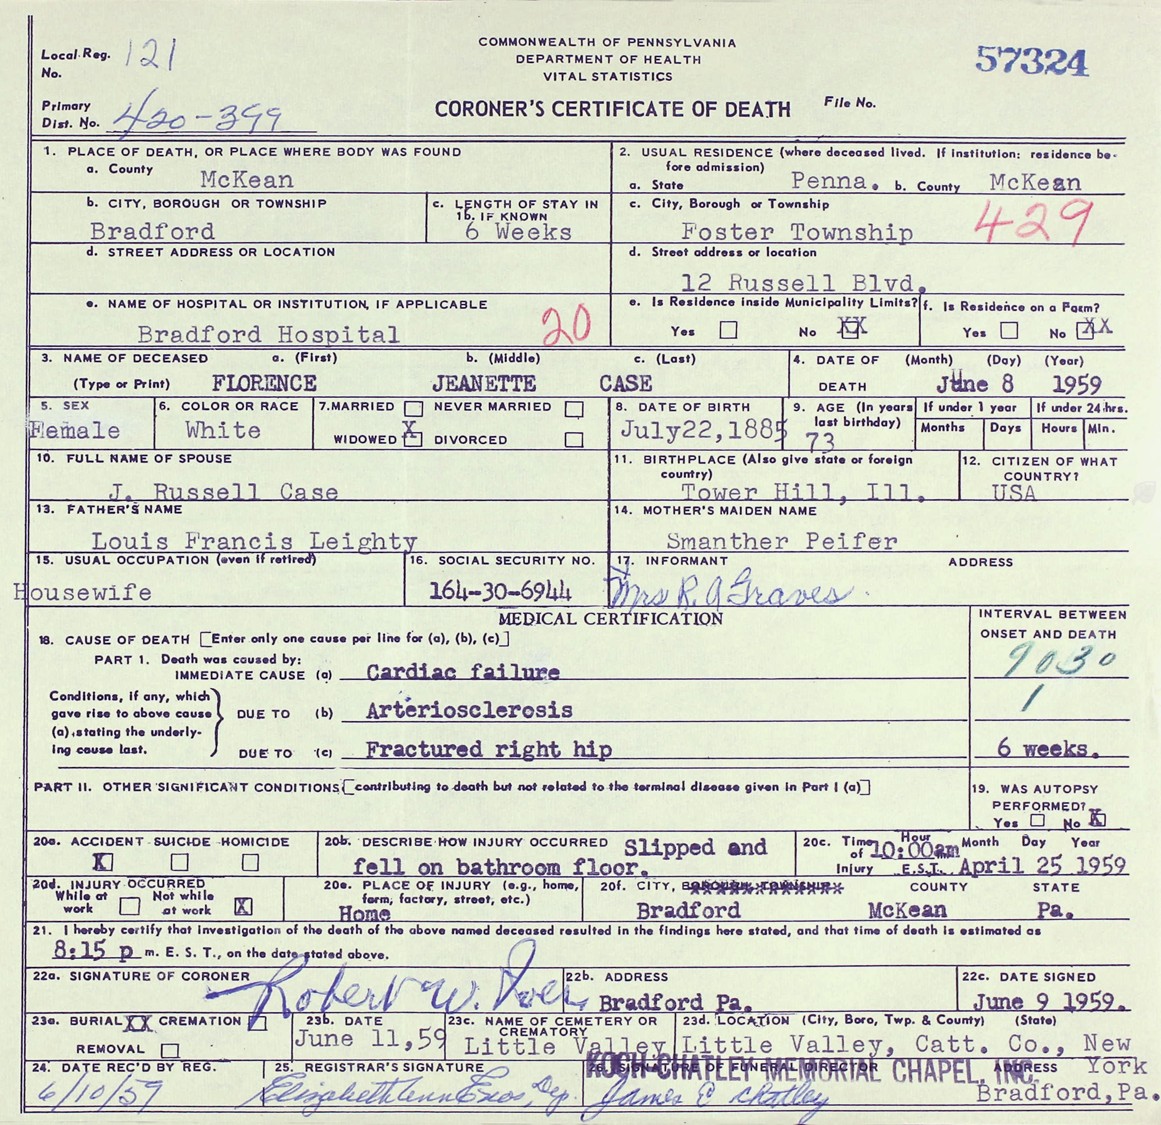 Local Reg. No. 121
COMMONWEALTH OF PENNSYLVANIA
DEPARTMENT OF HEALTH
VITAL STATISTICS
57324
Primary Dist. No. 420-399
CORONER'S CERTIFICATE OF DEATH
File No.
1. PLACE OF DEATH, OR PLACE WHERE BODY WAS FOUND
a. County McKean
2. USUAL RESIDENCE (where deceased lived. If institution: residence be-
fore admission)
a. State Penna. b. County McKean
b. CITY, BOROUGH OR TOWNSHIP
Bradford
c. LENGTH OF STAY IN
1b. IF KNOWN
6 Weeks
c. City, Borough or Township
Foster Township
429
d. STREET ADDRESS OR LOCATION
d. Street address or location
12 Russell Blvd.
e. NAME OF HOSPITAL OR INSTITUTION, IF APPLICABLE
Bradford Hospital
20
e. Is Residence inside Municipality Limits?
Yes No XX
f. Is Residence on a Farm?
Yes No XX
3. NAME OF DECEASED a. (First) b. (Middle) c. (Last)
(Type or Print) FLORENCE JEANETTE CASE
4. DATE OF (Month) (Day) (Year)
DEATH June 8 1959
5. SEX
Female
6. COLOR OR RACE
White
7. MARRIED NEVER MARRIED
WIDOWED X DIVORCED
8. DATE OF BIRTH
July22,1885
9. AGE (In years
last birthday)
73
If under 1 year
Months Days
If under 24 hrs.
Hours Min.
10. FULL NAME OF SPOUSE
J. Russell Case
11. BIRTHPLACE (Also give state or foreign
country)
Tower Hill, Ill.
12. CITIZEN OF WHAT
COUNTRY?
USA
13. FATHER'S NAME
Louis Francis Leighty
14. MOTHER'S MAIDEN NAME
Smanther Peifer
15. USUAL OCCUPATION (even if retired)
Housewife
16. SOCIAL SECURITY NO.
164-30-6944
17. INFORMANT ADDRESS
Mrs R. A Graves
MEDICAL CERTIFICATION
INTERVAL BETWEEN
ONSET AND DEATH
18. CAUSE OF DEATH [Enter only one cause per line for (a), (b), (c)]
PART 1. Death was caused by:
IMMEDIATE CAUSE (a) Cardiac failure
9030
Conditions, if any, which
gave rise to above cause
(a), stating the underly-
ing cause last.
DUE TO (b) Arteriosclerosis
1
DUE TO (c) Fractured right hip
6 weeks.
PART II. OTHER SIGNIFICANT CONDITIONS [contributing to death but not related to the terminal disease given in Part I (a)]
19. WAS AUTOPSY
PERFORMED?
Yes No X
20a. ACCIDENT SUICIDE HOMICIDE
X
20b. DESCRIBE HOW INJURY OCCURRED Slipped and
fell on bathroom floor.
20c. Time of Injury Hour Month Day Year
10:00am E.S.T. April 25 1959
20d. INJURY OCCURRED
While at work Not while at work X
20e. PLACE OF INJURY (e.g., home,
farm, factory, street, etc.)
Home
20f. CITY, BOROUGH, TOWNSHIP COUNTY STATE
Bradford McKean Pa.
21. I hereby certify that investigation of the death of the above named deceased resulted in the findings here stated, and that time of death is estimated as
8:15 p m. E. S. T., on the date stated above.
22a. SIGNATURE OF CORONER
Robert W.
22b. ADDRESS
Bradford Pa.
22c. DATE SIGNED
June 9 1959.
23a. BURIAL XX CREMATION
REMOVAL
23b. DATE
June 11,59
23c. NAME OF CEMETERY OR
CREMATORY
Little Valley
23d. LOCATION (City, Boro, Twp. & County) (State)
Little Valley, Catt. Co., New
York
24. DATE REC'D BY REG.
6/10/59
25. REGISTRAR'S SIGNATURE
26. SIGNATURE OF FUNERAL DIRECTOR ADDRESS
KOCH-CHATLEY MEMORIAL CHAPEL, INC.
James E Chatley
Bradford,Pa.